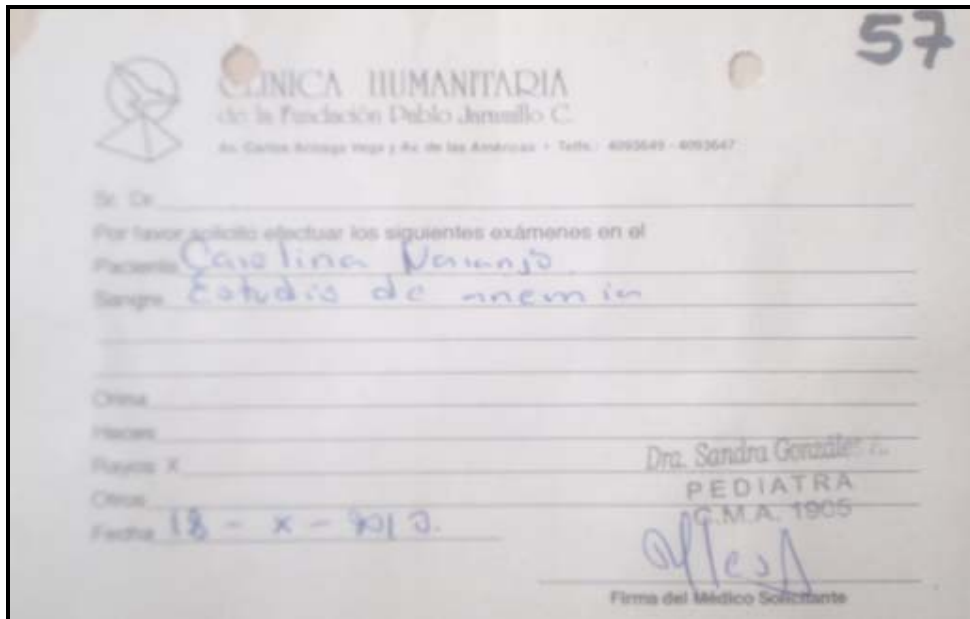 57
CLINICA HUMANITARIA
de la Fundación Pablo Jaramillo C.
Av. Carlos Arízaga Vega y Av. de las Américas • Telfs.: 4093649 - 4093647
Sr. Dr.
Por favor solicito efectuar los siguientes exámenes en el
Paciente Carolina Naranjo
Sangre Estudio de anemia
Orina
Heces
Rayos X
Otros
Fecha 18 - X -
Dra. Sandra González
PEDIATRA
C.M.A. 1905
Firma del Médico Solicitante